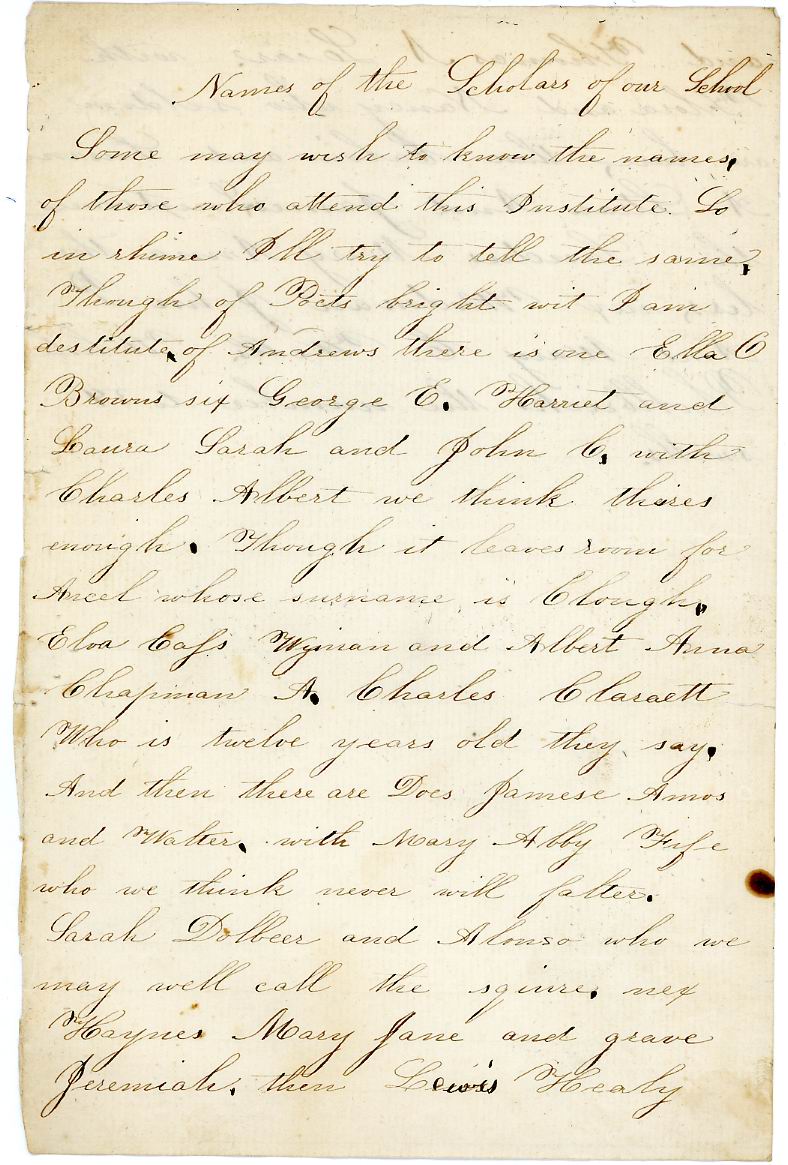 Names of the Scholars of our School
Some may wish to know the names,
of those who attend this Institute. So
in rhime I'll try to tell the same,
Though of Poets bright wit I am
destitute, of Andrews there is one Ella C
Browns six George E. Harriet and
Laura Sarah and John C, with
Charles Albert we think theres
enough. Though it leaves room for
Ancel whose surname is Clough,
Elva Cass Wyman and Albert Anna
Chapman A. Charles Claraett
Who is twelve years old they say,
And then there are Does Jamese Amos
and Walter, with Mary Abby Fife
who we think never will falter.
Sarah Dolbeer and Alonso who we
may well call the squire, nex
Haynes Mary Jane and grave
Jeremiah, then Lewis Healy